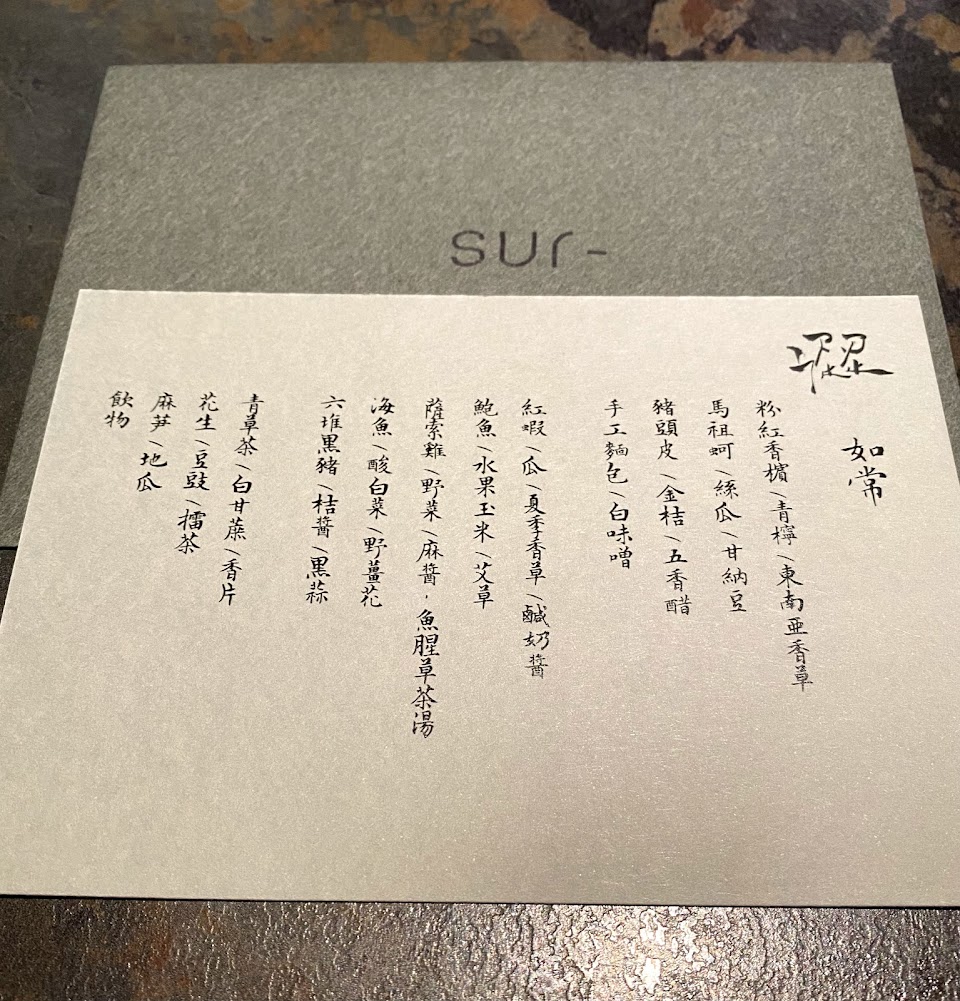 sur-
澀
如常
粉紅香檳/青檸/東南亞香草
馬祖蚵/絲瓜/甘納豆
豬頭皮/金桔/五香醋
手工麵包/白味噌
紅蝦/瓜/夏季香草/鹹奶醬
鮑魚/水果玉米/艾草
薩索雞/野菜/麻醬,魚腥草茶湯
海魚/酸白菜/野薑花
六堆黑豬/桔醬/黑蒜
青草茶/白甘蔗/香片
花生/豆豉/擂茶
麻芛/地瓜
飲物